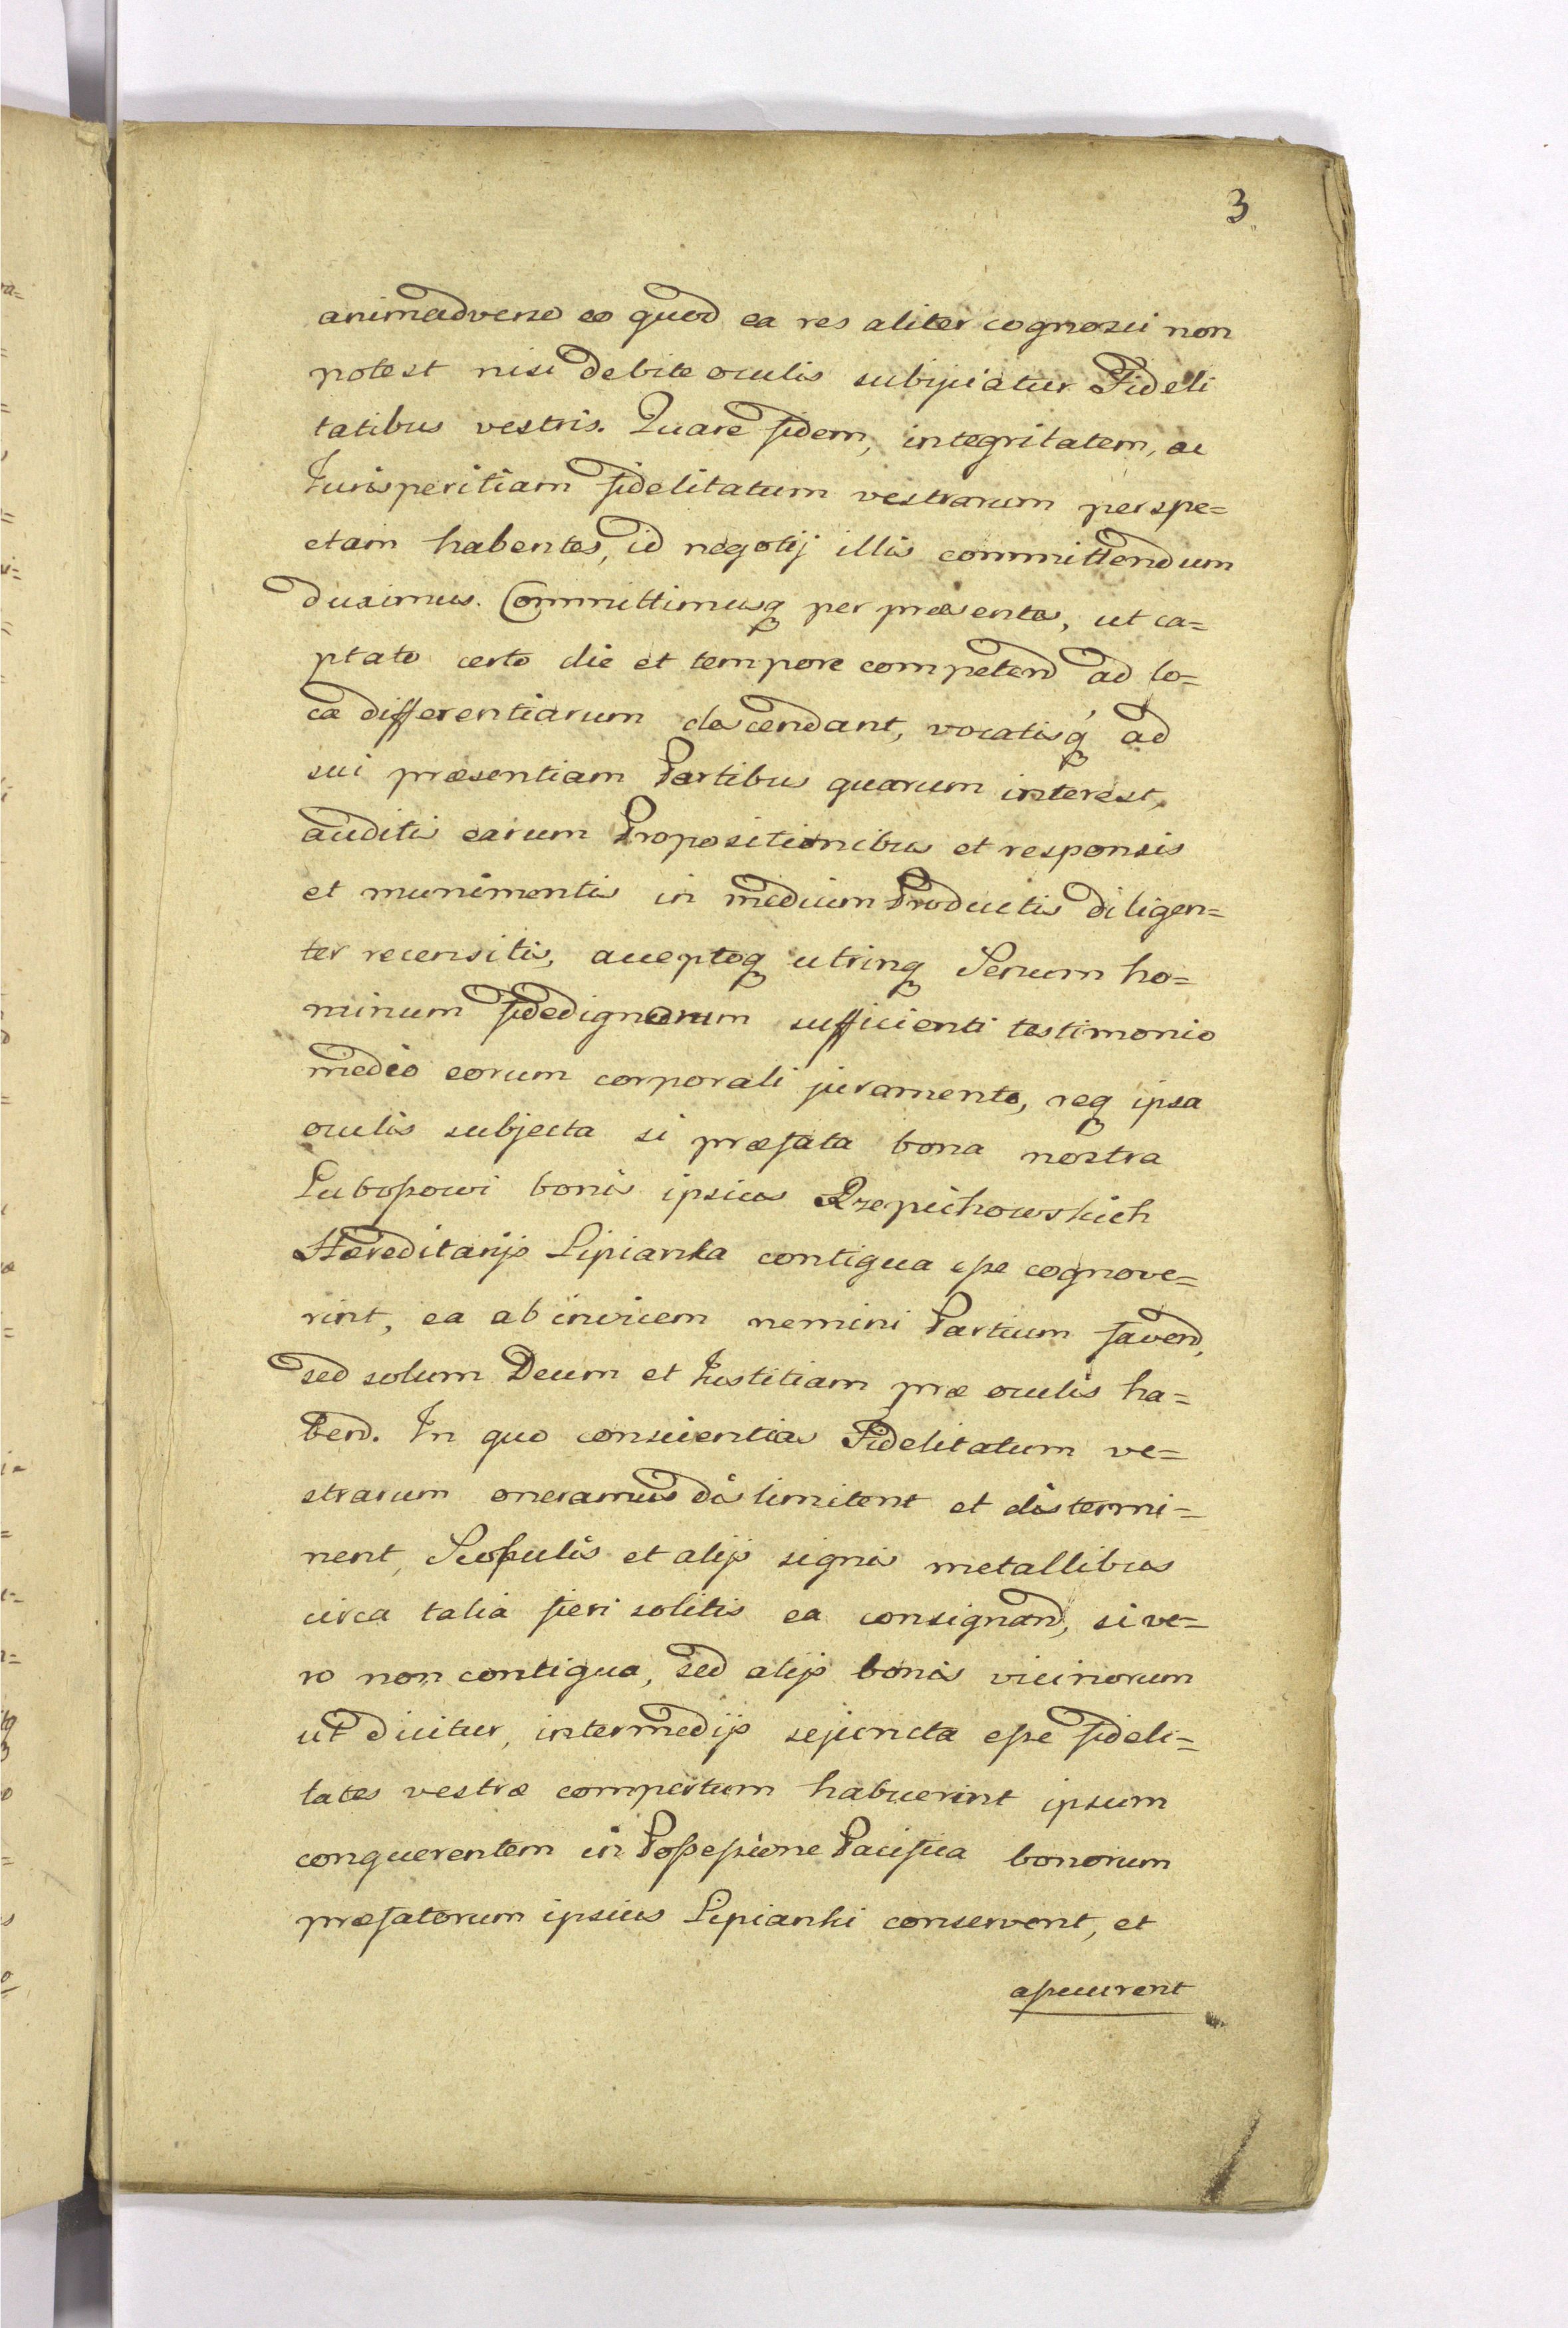 3
animadverso eo quod ea res aliter cognosci non
potest nisi debite oculis subijciatur Fideli
tatibus vestris. Quare fidem, integritatem, ac
Jurisperitiam fidelitatum vestrarum perspe=
ctam habentes, id negotij illis committendum
duximus. Committimusq per præsentes, ut ca=
ptato certo die et tempore competend ad lo=
ca differentiarum descendant, vocatisq ad
sui præsentiam Partibus quarum interest,
auditis earum Propositionibus et responsis
et munimentis in medium Productis diligen=
ter recensitis, acceptoq utrinq Senum ho=
minum fidedignorum sufficienti testimonio
medio eorum corporali juramento, req ipsa
oculis subjecta si præfata bona nostra
Lubossowi bonis ipsius Rzepichowskich
Hæreditarijs Lipianka contigua esse cognove=
rint, ea ab invicem nemini Partium favend,
sed solum Deum et Justitiam præ oculis ha=
bend. In quo conscientias Fidelitatum ve=
strarum oneramus dislimitent et distermi=
nent, Scopulis et alijs signis metallibus
circa talia fieri solitis ea consignand, si ve=
ro non contigua, sed alijs bonis vicinorum
ut dicitur, intermedijs sejuncta esse fideli=
tates vestræ compertum habuerint ipsum
conquerentem in Possessione Pacifica bonorum
præfatorum ipsius Lipianki conservent, et
assecurent